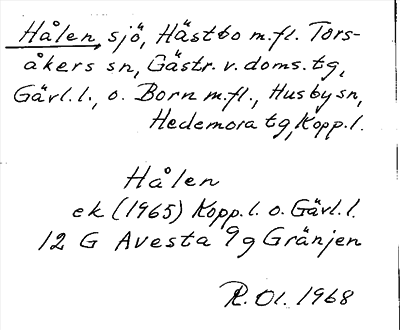 Hålen, sjö, Hästbo m.fl. Tors-
åkers sn, Gästr. v. doms. tg,
Gävl. l., o. Born m.fl., Husby sn,
Hedemora tg, Kopp. l.
Hålen
ek (1965) Kopp. l. o. Gävl. l.
12 G Avesta 9 g Gränjen
R. Ol. 1968